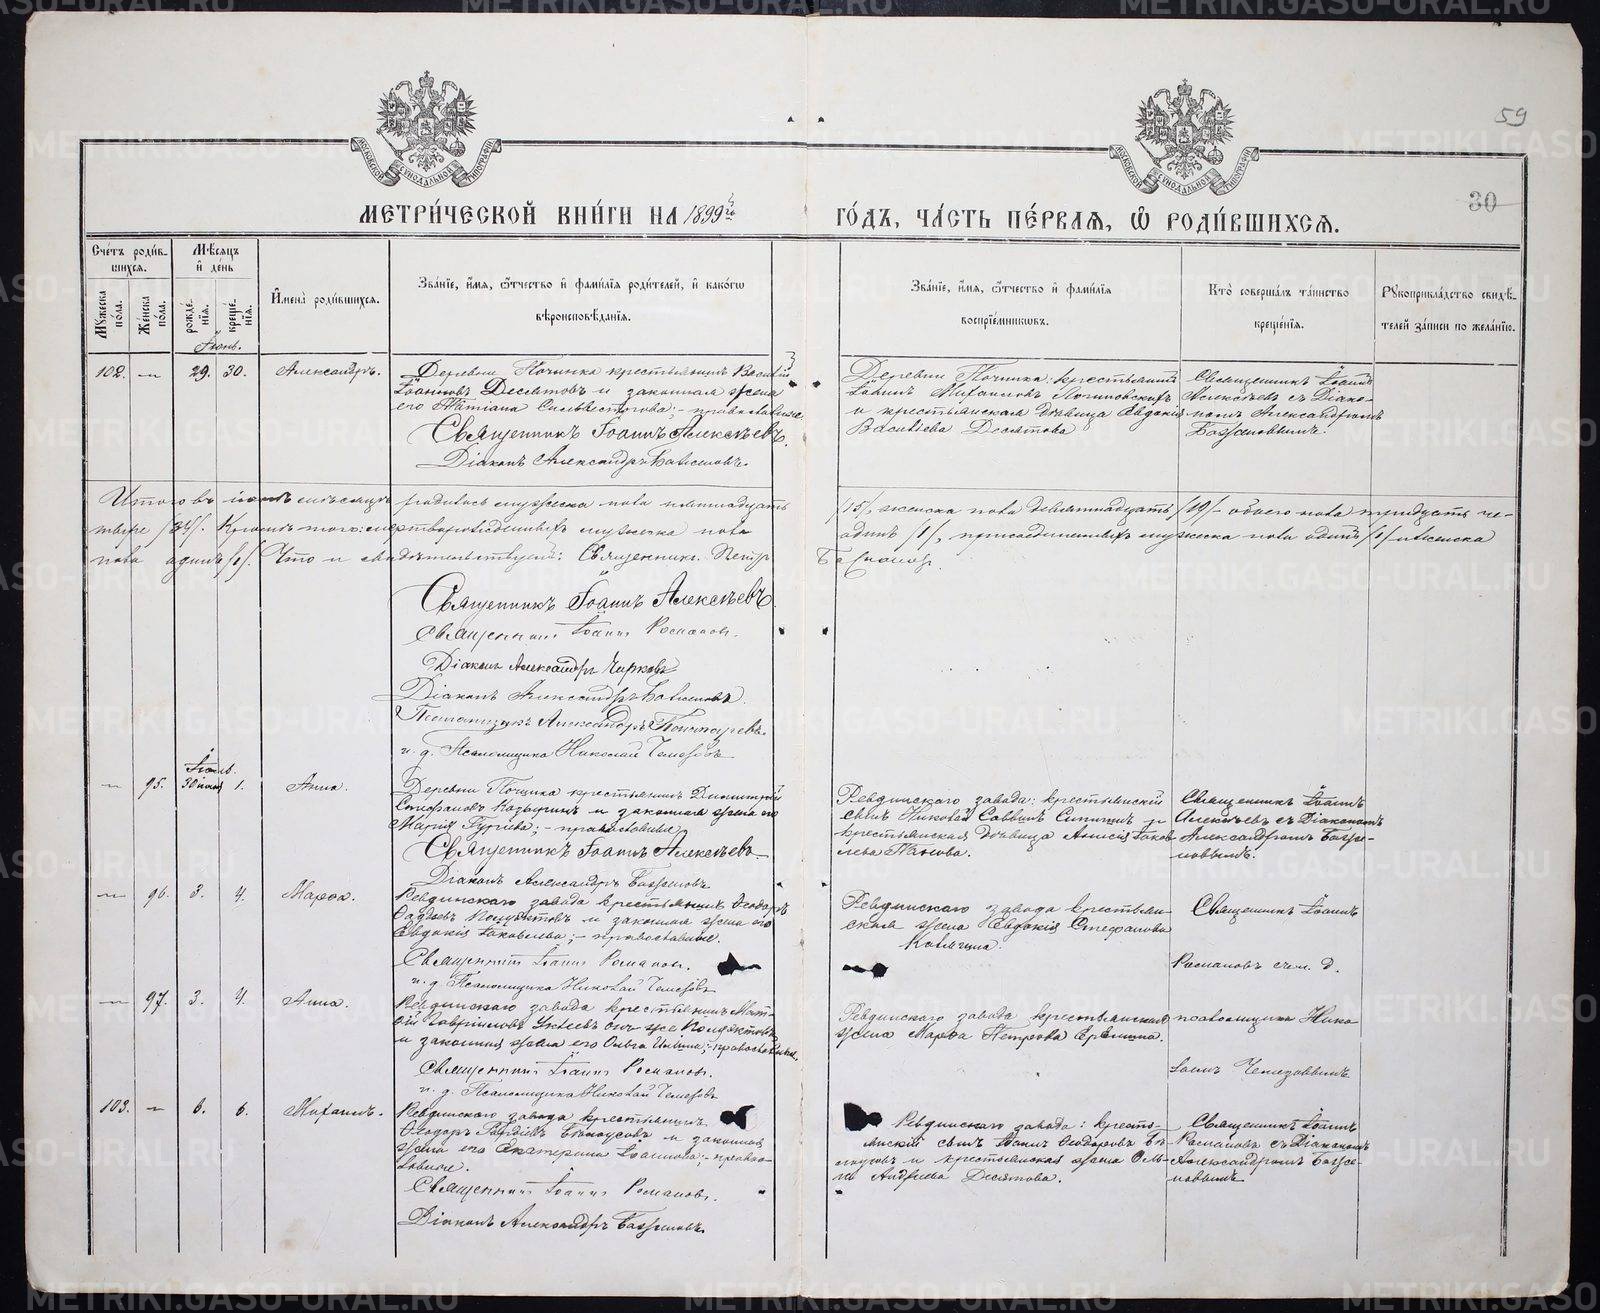 59
30
МОСКОВСКОЙ СѴНОДАЛЬНОЙ ТИПОГРАФІИ
МОСКОВСКОЙ СѴНОДАЛЬНОЙ ТИПОГРАФІИ
МЕТРИЧЕСКОЙ КНИГИ НА 1899 го ГОДЪ, ЧАСТЬ ПЕРВАЯ, Ѡ РОДИВШИХСЯ.
Счетъ родившихся.
Мужеска пола.
Женска пола.
Мѣсяцъ и день
рожденія.
крещенія.
Имена родившихся.
Званіе, имя, отчество и фамилія родителей, и какогѡ
вѣроисповѣданія.
Званіе, имя, отчество и фамилія
воспріемниковъ.
Кто совершалъ таинство
крещенія.
Рукоприкладство свидѣ-
телей записи по желанію.
Іюнь.
102. — 29. 30. Александръ.
Деревни Починка крестьянинъ Василій
Іоанновъ Десятовъ и законная жена
его Татіана Сильвестрова; – православные.
Священникъ Іоаннъ Алексѣевъ.
Діаконъ Александръ Баженовъ.
Деревни Починка: крестьянинъ
Іоаннъ Михаиловъ
и крестьянская дѣвица Евдокія
Васильева Десятова
Священникъ Іоаннъ
Алексѣевъ съ Діако-
номъ Александромъ
Баженовымъ.
Итого въ іюнѣ мѣсяцѣ родилось мужеска пола пятнадцать /15/, женска пола девятнадцать /19/ – обоего пола тридцать че-
тыре /34/. Кромѣ того: мертворожденныхъ мужеска пола одинъ /1/, присоединенныхъ мужеска пола одинъ /1/ и женска
пола одинъ /1/. Что и свидѣтельствуемъ: Священникъ Петръ
Священникъ Іоаннъ Алексѣевъ.
Священникъ Іоаннъ Романовъ.
Діаконъ Александръ Чирковъ
Діаконъ Александръ Баженовъ.
Псаломщикъ Александръ Пономаревъ.
и. д. Псаломщика Николай Чемезовъ
Іюль.
— 95. 30 іюня 1. Анна.
Деревни Починка крестьянинъ Димитрій
Стефановъ и законная жена его
Марія Гурьева; – православные
Священникъ Іоаннъ Алексѣевъ
Діаконъ Александръ Баженовъ
Ревдинскаго завода: крестьянскій
сынъ Николай Саввинъ и
крестьянская дѣвица Анисія Іаков-
лева
Священникъ Іоаннъ
Алексѣевъ съ Діакономъ
Александромъ Баже-
новымъ.
— 96. 3. 4. Марѳа.
Ревдинскаго завода крестьянинъ Ѳеодоръ
и законная жена его
Евдокія Іаковлева; – православные.
Священникъ Іоаннъ Романовъ.
и. д. Псаломщика Николай Чемезовъ
Ревдинскаго завода крестьян-
ская жена Евдокія Стефанова
Священникъ Іоаннъ
Романовъ съ и. д.
— 97. 3. 4. Анна.
Ревдинскаго завода крестьянинъ Мат-
ѳій Гавріиловъ онъ же
и законная жена его Ольга Ильина; – православные.
Священникъ Іоаннъ Романовъ.
и. д. Псаломщика Николай Чемезовъ
Ревдинскаго завода крестьянская
жена Марѳа Петрова
псаломщика Нико-
лаемъ Чемезовымъ
103. — 6. 6. Михаилъ.
Ревдинскаго завода крестьянинъ
Ѳеодоръ Бѣлоусовъ и законная
жена его Екатерина Іоаннова; – право-
славные.
Священникъ Іоаннъ Романовъ.
Діаконъ Александръ Баженовъ.
Ревдинскаго завода: кресть-
янскій сынъ Ѳеодоровъ Бѣ-
лоусовъ и крестьянская жена
Андреева Десятова.
Священникъ Іоаннъ
Романовъ съ Діакономъ
Александромъ Баже-
новымъ
METRIKI.GASO-URAL.RU